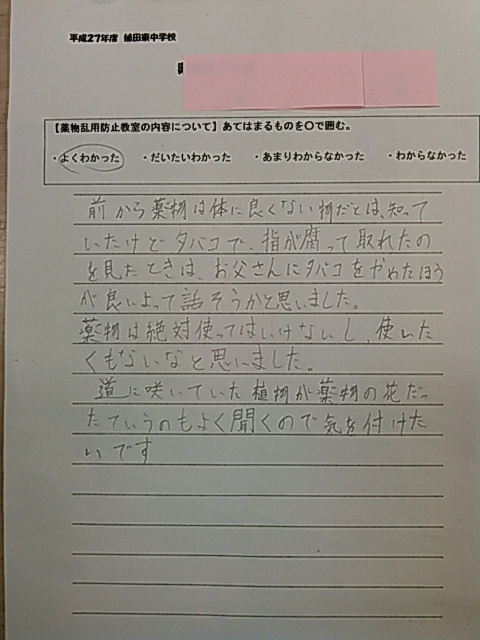 平成27年度 植田東中学校
【薬物乱用防止教室の内容について】あてはまるものを〇で囲む。
・よくわかった ・だいたいわかった ・あまりわからなかった ・わからなかった
前から薬物は体に良くない物だとは、知って
いたけどタバコで、指が腐って取れたの
を見たときは、お父さんにタバコをやめたほう
が良いよって話そうかと思いました。
薬物は絶対使ってはいけないし、使いた
くもないなと思いました。
道に咲いていた植物が薬物の花だっ
たていうのもよく聞くので気を付けた
いです